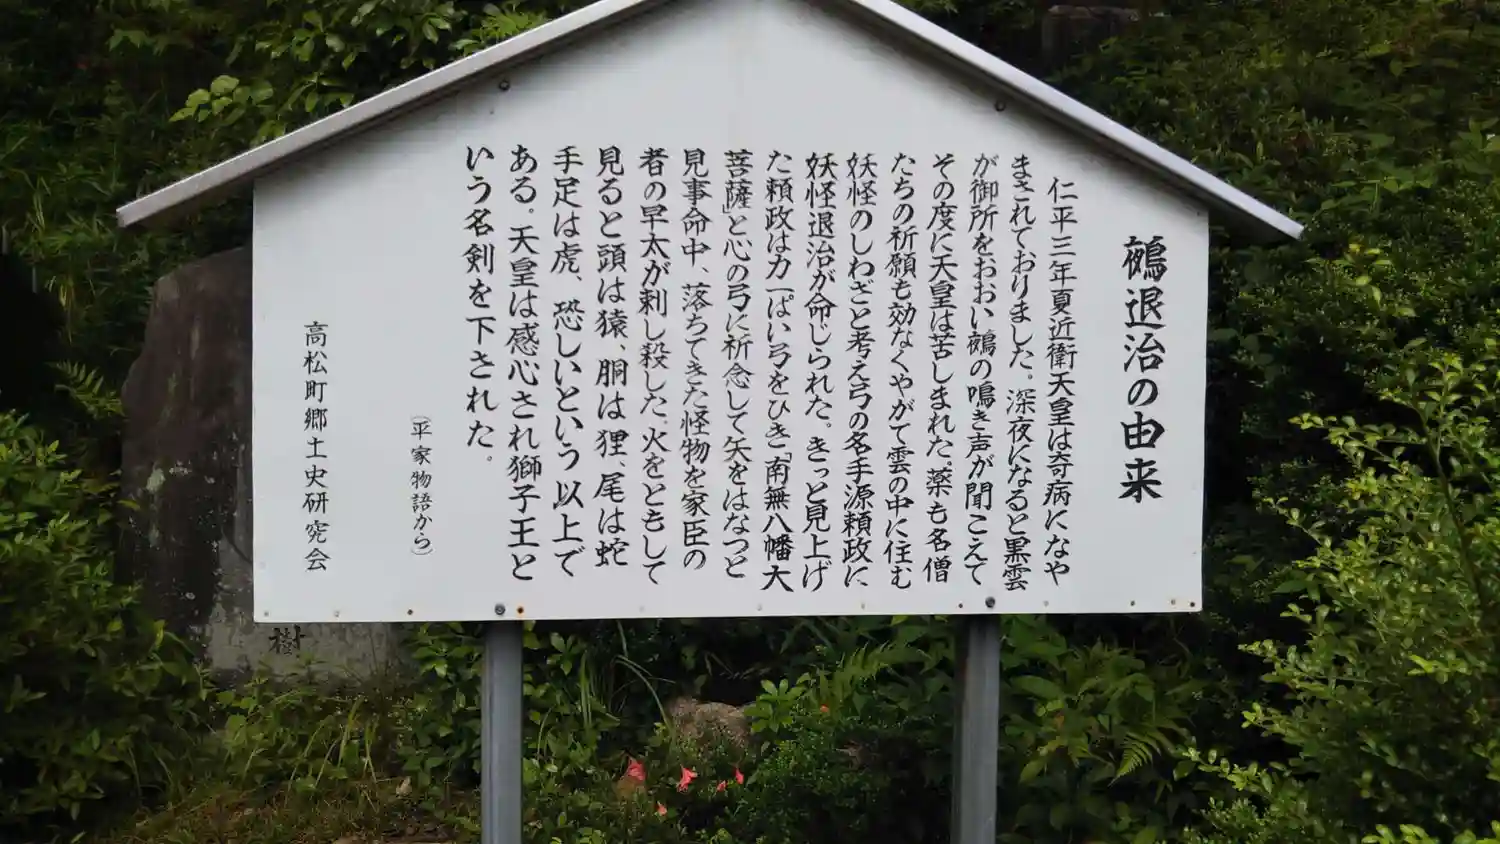 鵺退治の由来
仁平三年夏近衛天皇は奇病になや
まされておりました。深夜になると黒雲
が御所をおおい鵺の鳴き声が聞こえて
その度に天皇は苦しまれた。薬も名僧
たちの祈願も効なくやがて雲の中に住む
妖怪のしわざと考え弓の名手源頼政に
妖怪退治が命じられた。きっと見上げ
た頼政は力一ぱい弓をひき「南無八幡大
菩薩」と心の弓に祈念して矢をはなつと
見事命中、落ちてきた怪物を家臣の
者の早太が刺し殺した。火をともして
見ると頭は猿、胴は狸、尾は蛇
手足は虎、恐しいという以上で
ある。天皇は感心され獅子王と
いう名剣を下された。
(平家物語から)
高松町郷土史研究会
樹